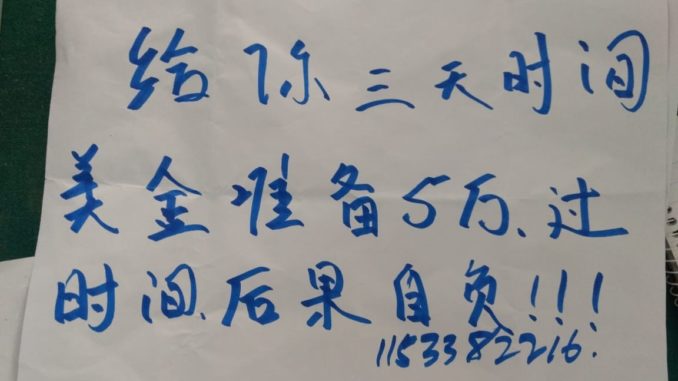 给你三天时间
美金准备5万、过
时间、后果自负!!!
1153382216.